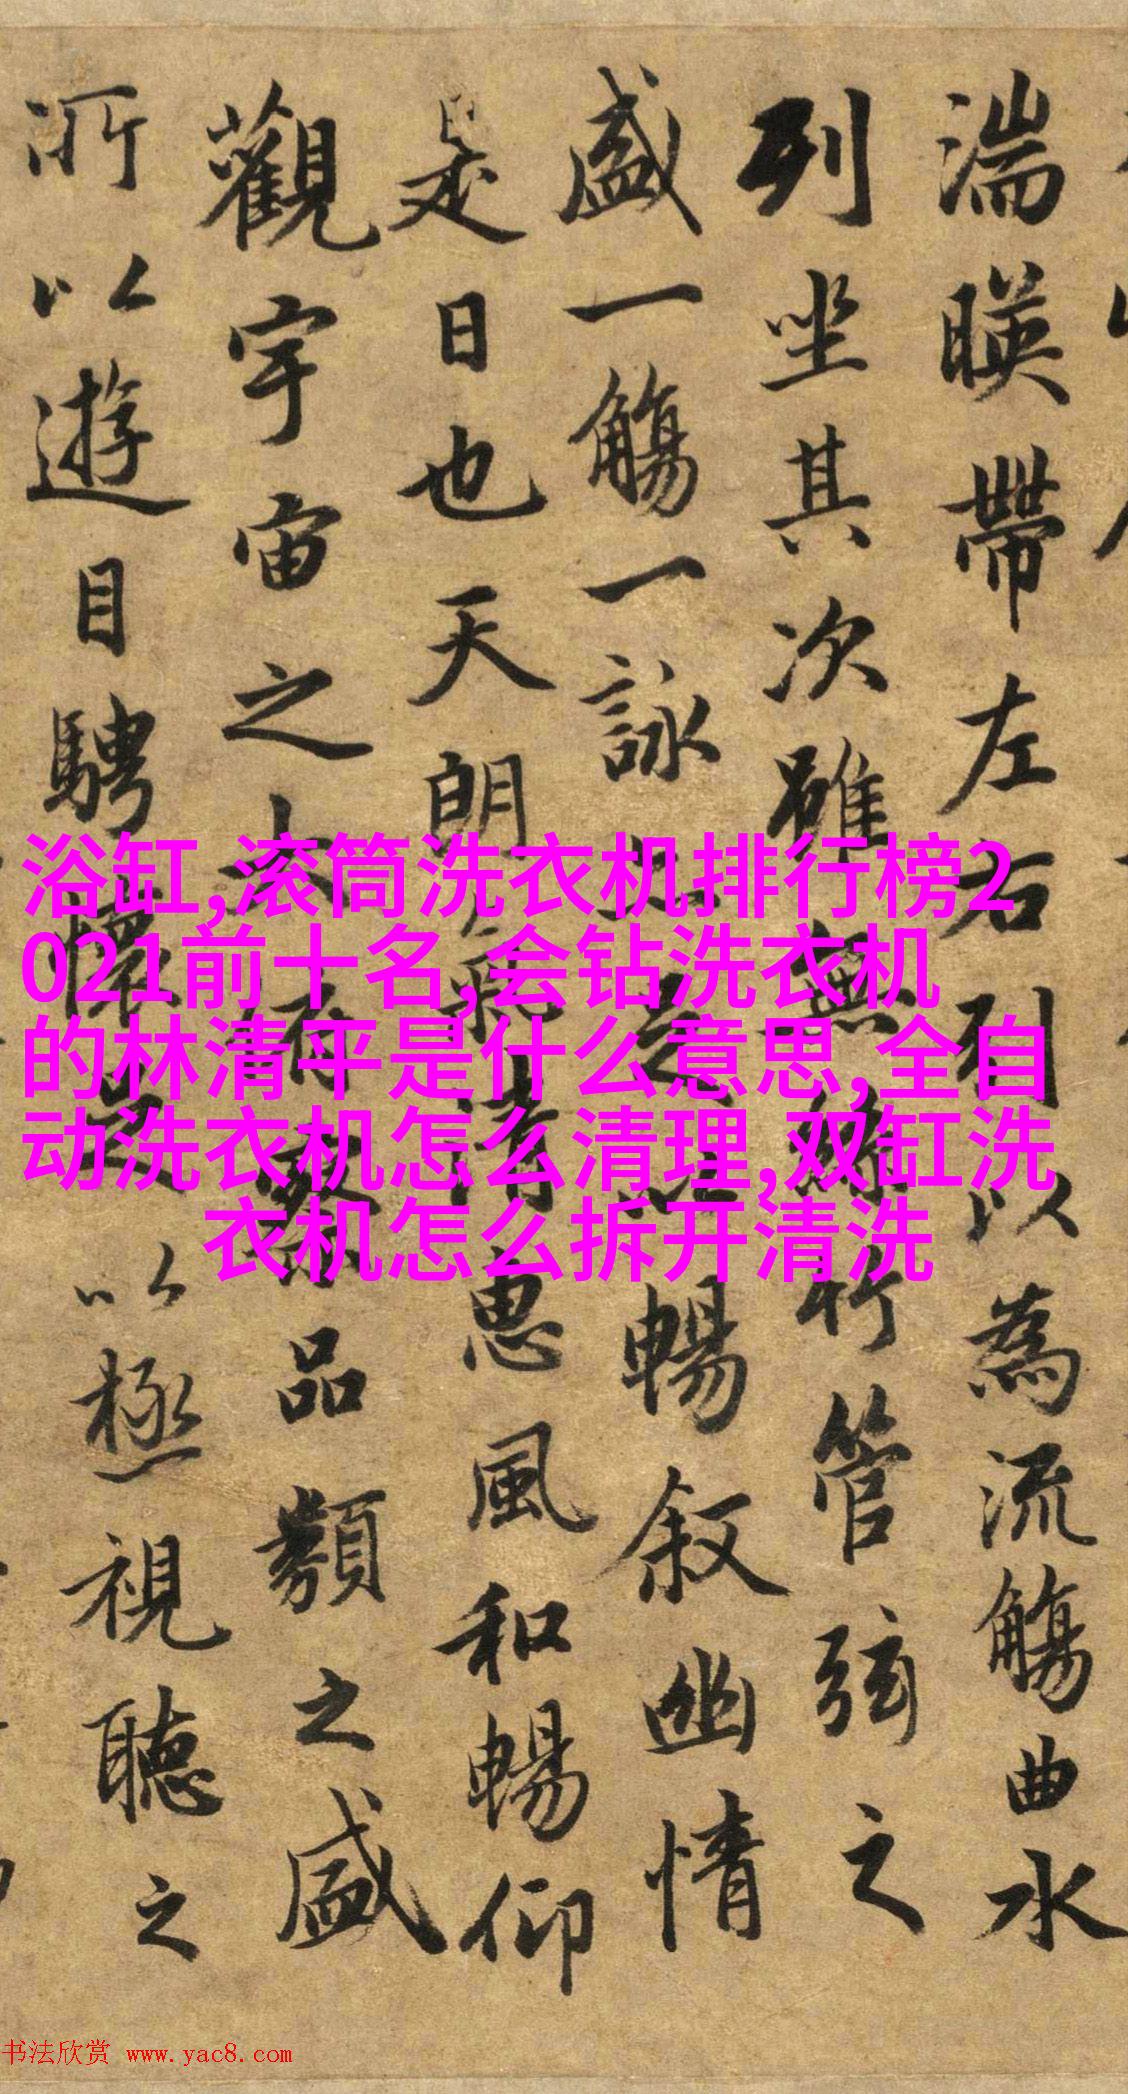 湍暎帶左右引以為流觴曲水
列坐其次雖無絲竹管弦之
盛一觴一詠亦足以暢叙幽情
是日也天朗氣清惠風和暢仰
觀宇宙之大俯察品類之盛
所以遊目騁懷足以極視聽之
浴缸,滚筒洗衣机排行榜2
021前十名,会钻洗衣机
的林清平是什么意思,全自
动洗衣机怎么清理,双缸洗
衣机怎么拆开清洗
书法欣赏 www.yac8.com